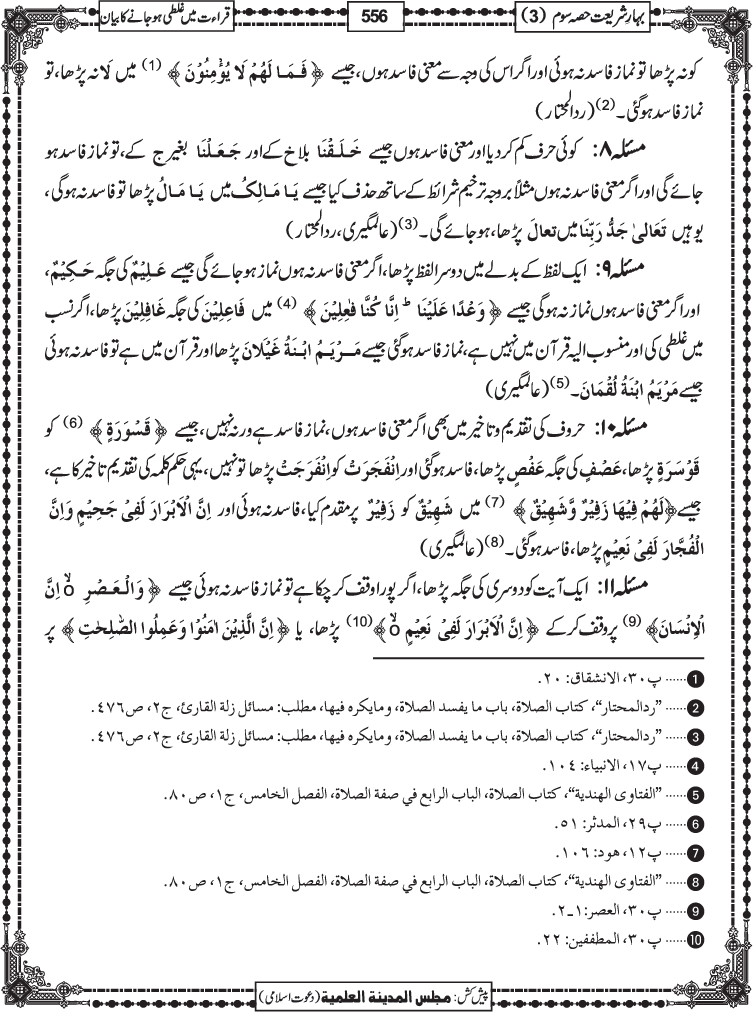 بہارِ شریعت حصہ سوم (3)
556
قراءت میں غلطی ہو جانے کا بیان
کو نہ پڑھا تو نماز فاسد نہ ہوئی اور اگر اس کی وجہ سے معنی فاسد ہوں، جیسے ﴿ فَمَا لَهُمْ لَا یُؤْمِنُوْنَ ﴾ (1) میں لَا نہ پڑھا، تو
نماز فاسد ہوگئی۔(2) (ردالمحتار)
مسئلہ ۸: کوئی حرف کم کر دیا اور معنی فاسد ہوں جیسے خَلَقْنَا بلا خ کے اور جَعَلْنَا بغیر ج کے، تو نماز فاسد ہو
جائے گی اور اگر معنی فاسد نہ ہوں مثلاً بروجہ ترخیم شرائط کے ساتھ حذف کیا جیسے یَا مَالِکُ میں یَا مَالُ پڑھا تو فاسد نہ ہوگی،
یوہیں تَعَالیٰ جَدُّ رَبِّنَا میں تعالَ پڑھا، ہو جائے گی۔(3) (عالمگیری، ردالمحتار)
مسئلہ ۹: ایک لفظ کے بدلے میں دوسرا لفظ پڑھا، اگر معنی فاسد نہ ہوں نماز ہو جائے گی جیسے عَلِیْمٌ کی جگہ حَکِیْمٌ،
اور اگر معنی فاسد ہوں نماز نہ ہوگی جیسے ﴿ وَعْدًا عَلَیْنَا ؕ اِنَّا كُنَّا فٰعِلِیْنَ ﴾ (4) میں فَاعِلِیْنَ کی جگہ غَافِلِیْنَ پڑھا، اگر نسب
میں غلطی کی اور منسوب الیہ قرآن میں نہیں ہے، نماز فاسد ہوگئی جیسے مَرْیَمُ ابْنَةُ غَیْلَانَ پڑھا اور قرآن میں ہے تو فاسد نہ ہوئی
جیسے مَرْیَمُ ابْنَةُ لُقْمَانَ۔(5) (عالمگیری)
مسئلہ ۱۰: حروف کی تقدیم و تاخیر میں بھی اگر معنی فاسد ہوں، نماز فاسد ہے ورنہ نہیں، جیسے ﴿ قَسْوَرَةٍ ﴾ (6) کو
قَوْسَرَةٍ پڑھا، عَصْفٍ کی جگہ عَفْصٍ پڑھا، فاسد ہوگئی اور اِنْفَجَرَتْ کو اِنْفَرَجَتْ پڑھا تو نہیں، یہی حکم کلمہ کی تقدیم تاخیر کا ہے،
جیسے ﴿لَهُمْ فِیْهَا زَفِیْرٌ وَّشَهِیْقٌ ﴾ (7) میں شَهِیْقٌ کو زَفِیْرٌ پر مقدم کیا، فاسد نہ ہوئی اور اِنَّ الْاَبْرَارَ لَفِیْ جَحِیْمٍ وَاِنَّ
الْفُجَّارَ لَفِیْ نَعِیْمٍ پڑھا، فاسد ہوگئی۔(8) (عالمگیری)
مسئلہ ۱۱: ایک آیت کو دوسری کی جگہ پڑھا، اگر پورا وقف کر چکا ہے تو نماز فاسد نہ ہوئی جیسے ﴿ وَالْعَصْرِ ۙ0 اِنَّ
الْاِنْسَانَ﴾ (9) پر وقف کر کے ﴿ اِنَّ الْاَبْرَارَ لَفِیْ نَعِیْمٍ ۙ0 ﴾ (10) پڑھا، یا ﴿ اِنَّ الَّذِیْنَ اٰمَنُوْا وَعَمِلُوا الصّٰلِحٰتِ ﴾ پر
1 ...... پ۳۰، الانشقاق: ۲۰.
2 ...... ”ردالمحتار“، کتاب الصلاة، باب ما یفسد الصلاة، ومایکره فیها، مطلب: مسائل زلة القارئ، ج۲، ص۴۷۶.
3 ...... ”ردالمحتار“، کتاب الصلاة، باب ما یفسد الصلاة، ومایکره فیها، مطلب: مسائل زلة القارئ، ج۲، ص۴۷۶.
4 ...... پ۱۷، الانبیاء: ۱۰۴.
5 ...... ”الفتاوی الهندیة“، کتاب الصلاة، الباب الرابع في صفة الصلاة، الفصل الخامس، ج۱، ص۸۰.
6 ...... پ۲۹، المدثر: ۵۱.
7 ...... پ۱۲، هود: ۱۰۶.
8 ...... ”الفتاوی الهندیة“، کتاب الصلاة، الباب الرابع في صفة الصلاة، الفصل الخامس، ج۱، ص۸۰.
9 ...... پ۳۰، العصر: ۱ـ۲.
10 ...... پ۳۰، المطففین: ۲۲.
پیش کش: مجلس المدینة العلمیة (دعوت اسلامی)